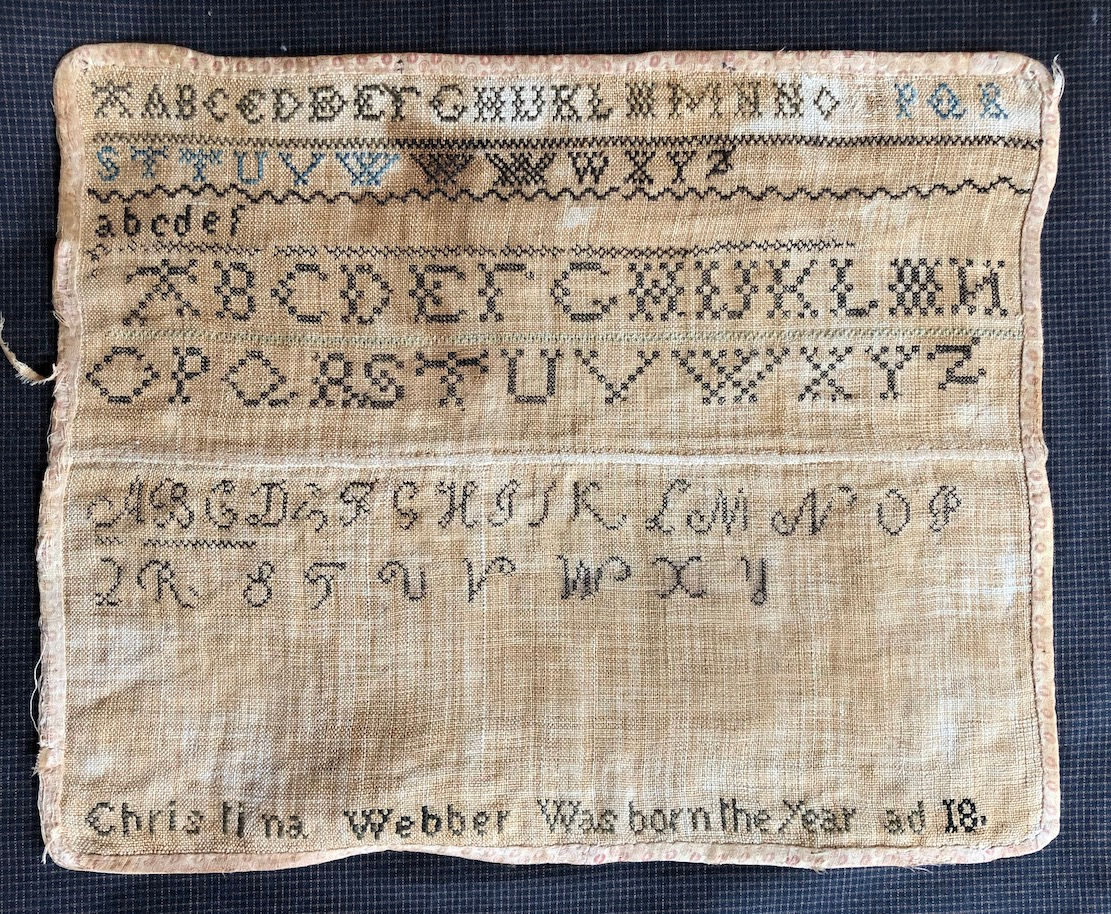 A A B C C D D E F G H I K L M M N N O P Q R
S T T U V W W W W X Y Z
a b c d e f
A B C D E F G H I K L M N
O P Q R S T U V W X Y Z
A B C D E F G H I J K L M N O P
Q R S T U V W X Y
Christina Webber Was born the Year ad 18.